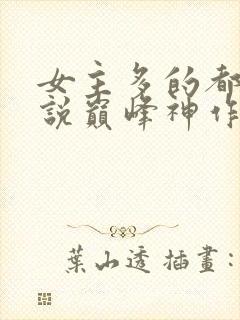 女主多的都
說巔峰神作
葉山透 插畫：